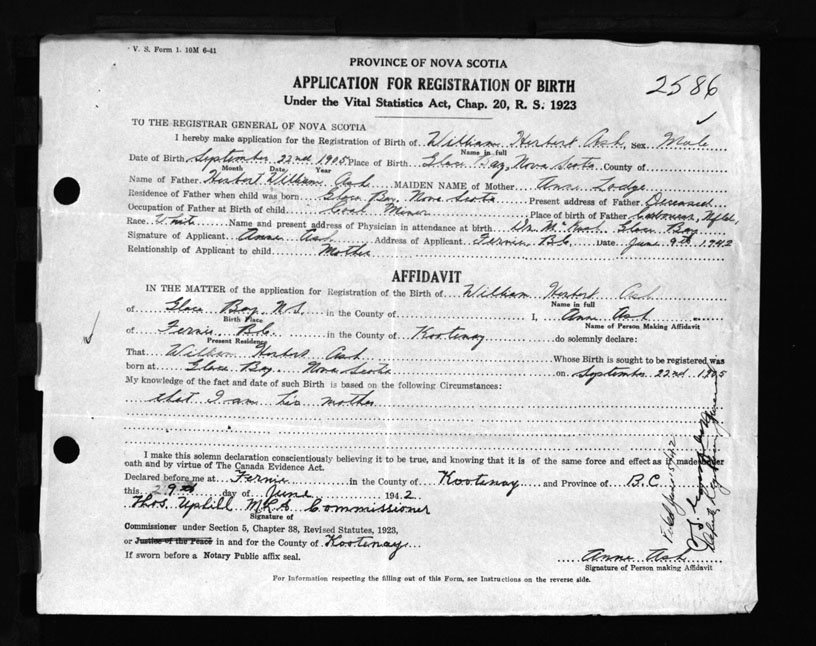 V. S. Form 1. 10M 6-41
PROVINCE OF NOVA SCOTIA
APPLICATION FOR REGISTRATION OF BIRTH
Under the Vital Statistics Act, Chap. 20, R. S. 1923
2586
TO THE REGISTRAR GENERAL OF NOVA SCOTIA
I hereby make application for the Registration of Birth of William Herbert Ash Sex Male
Name in full
Date of Birth September 22nd 1905 Place of Birth Glace Bay, Nova Scotia County of
Month Date Year
Name of Father Herbert William Ash MAIDEN NAME of Mother Anne Lodge
Residence of Father when child was born Glace Bay Nova Scotia Present address of Father Deceased
Occupation of Father at Birth of child Coal Miner Place of birth of Father
Race White Name and present address of Physician in attendance at birth Dr. Glace Bay
Signature of Applicant Anne Ash Address of Applicant Fernie B.C. Date June 9th 1942
Relationship of Applicant to child Mother
AFFIDAVIT
IN THE MATTER of the application for Registration of the Birth of William Herbert Ash
Name in full
of Glace Bay N.S. in the County of I, Anne Ash
Birth Place Name of Person Making Affidavit
of Fernie B.C. in the County of Kootenay do solemnly declare:
Present Residence
That William Herbert Ash Whose Birth is sought to be registered was
born at Glace Bay Nova Scotia on September 22nd 1905
My knowledge of the fact and date of such Birth is based on the following Circumstances:
that I am his mother
I make this solemn declaration conscientiously believing it to be true, and knowing that it is of the same force and effect as if made under
oath and by virtue of The Canada Evidence Act.
Declared before me at Fernie in the County of Kootenay and Province of B.C.
this 29th day of June 1942
Thos. Uphill M.L.A. Commissioner
Signature of
Commissioner under Section 5, Chapter 38, Revised Statutes, 1923,
or Justice of the Peace in and for the County of Kootenay
If sworn before a Notary Public affix seal.
Anne Ash
Signature of Person making Affidavit
For Information respecting the filling out of this Form, see Instructions on the reverse side.